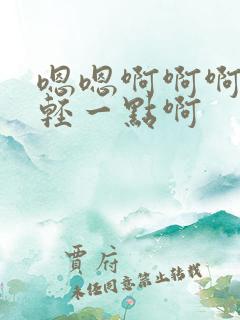 嗯嗯啊啊啊
輕一點啊
賈府
未經同意禁止轉載